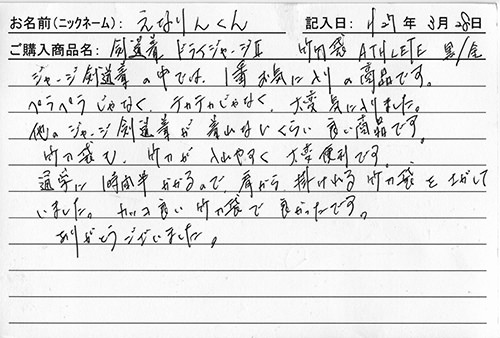 お名前(ニックネーム): えなりんくん 記入日: H27年 3月28日
ご購入商品名: 剣道着 ドライジャージII 竹刀袋 ATHLETE 黒/金
ジャージ剣道着の中では、1番お気に入りの商品です。
ペラペラじゃなく、テカテカじゃなく、大変気に入りました。
他のジャージ剣道着が着れないくらい良い商品です。
竹刀袋も、竹刀が入れやすく大変便利です。
通学に1時間半かかるので、肩から掛けれる竹刀袋を上がして
いました。カッコ良い竹刀袋で良かったです。
ありがとうございました。